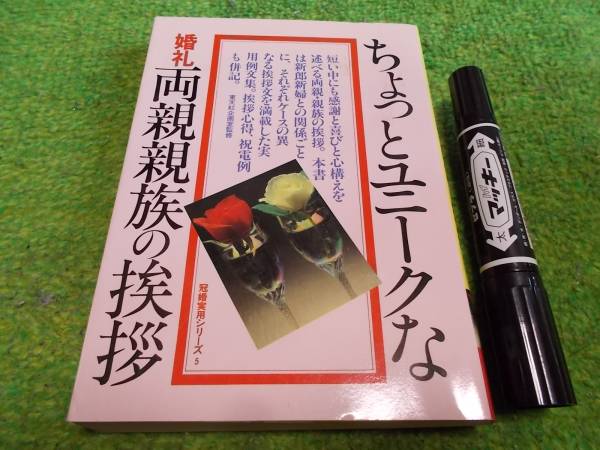 ちょっとユニークな
婚礼
両親親族の挨拶
短い中にも感謝と喜びと心構えを
述べる両親・親族の挨拶。本書
は新郎新婦との関係ごと
に、それぞれケースの異
なる挨拶文を満載した実
用例文集。挨拶心得、祝電例
も併記。
東天社企画室監修
冠婚実用シリーズ 5
マッキー
太